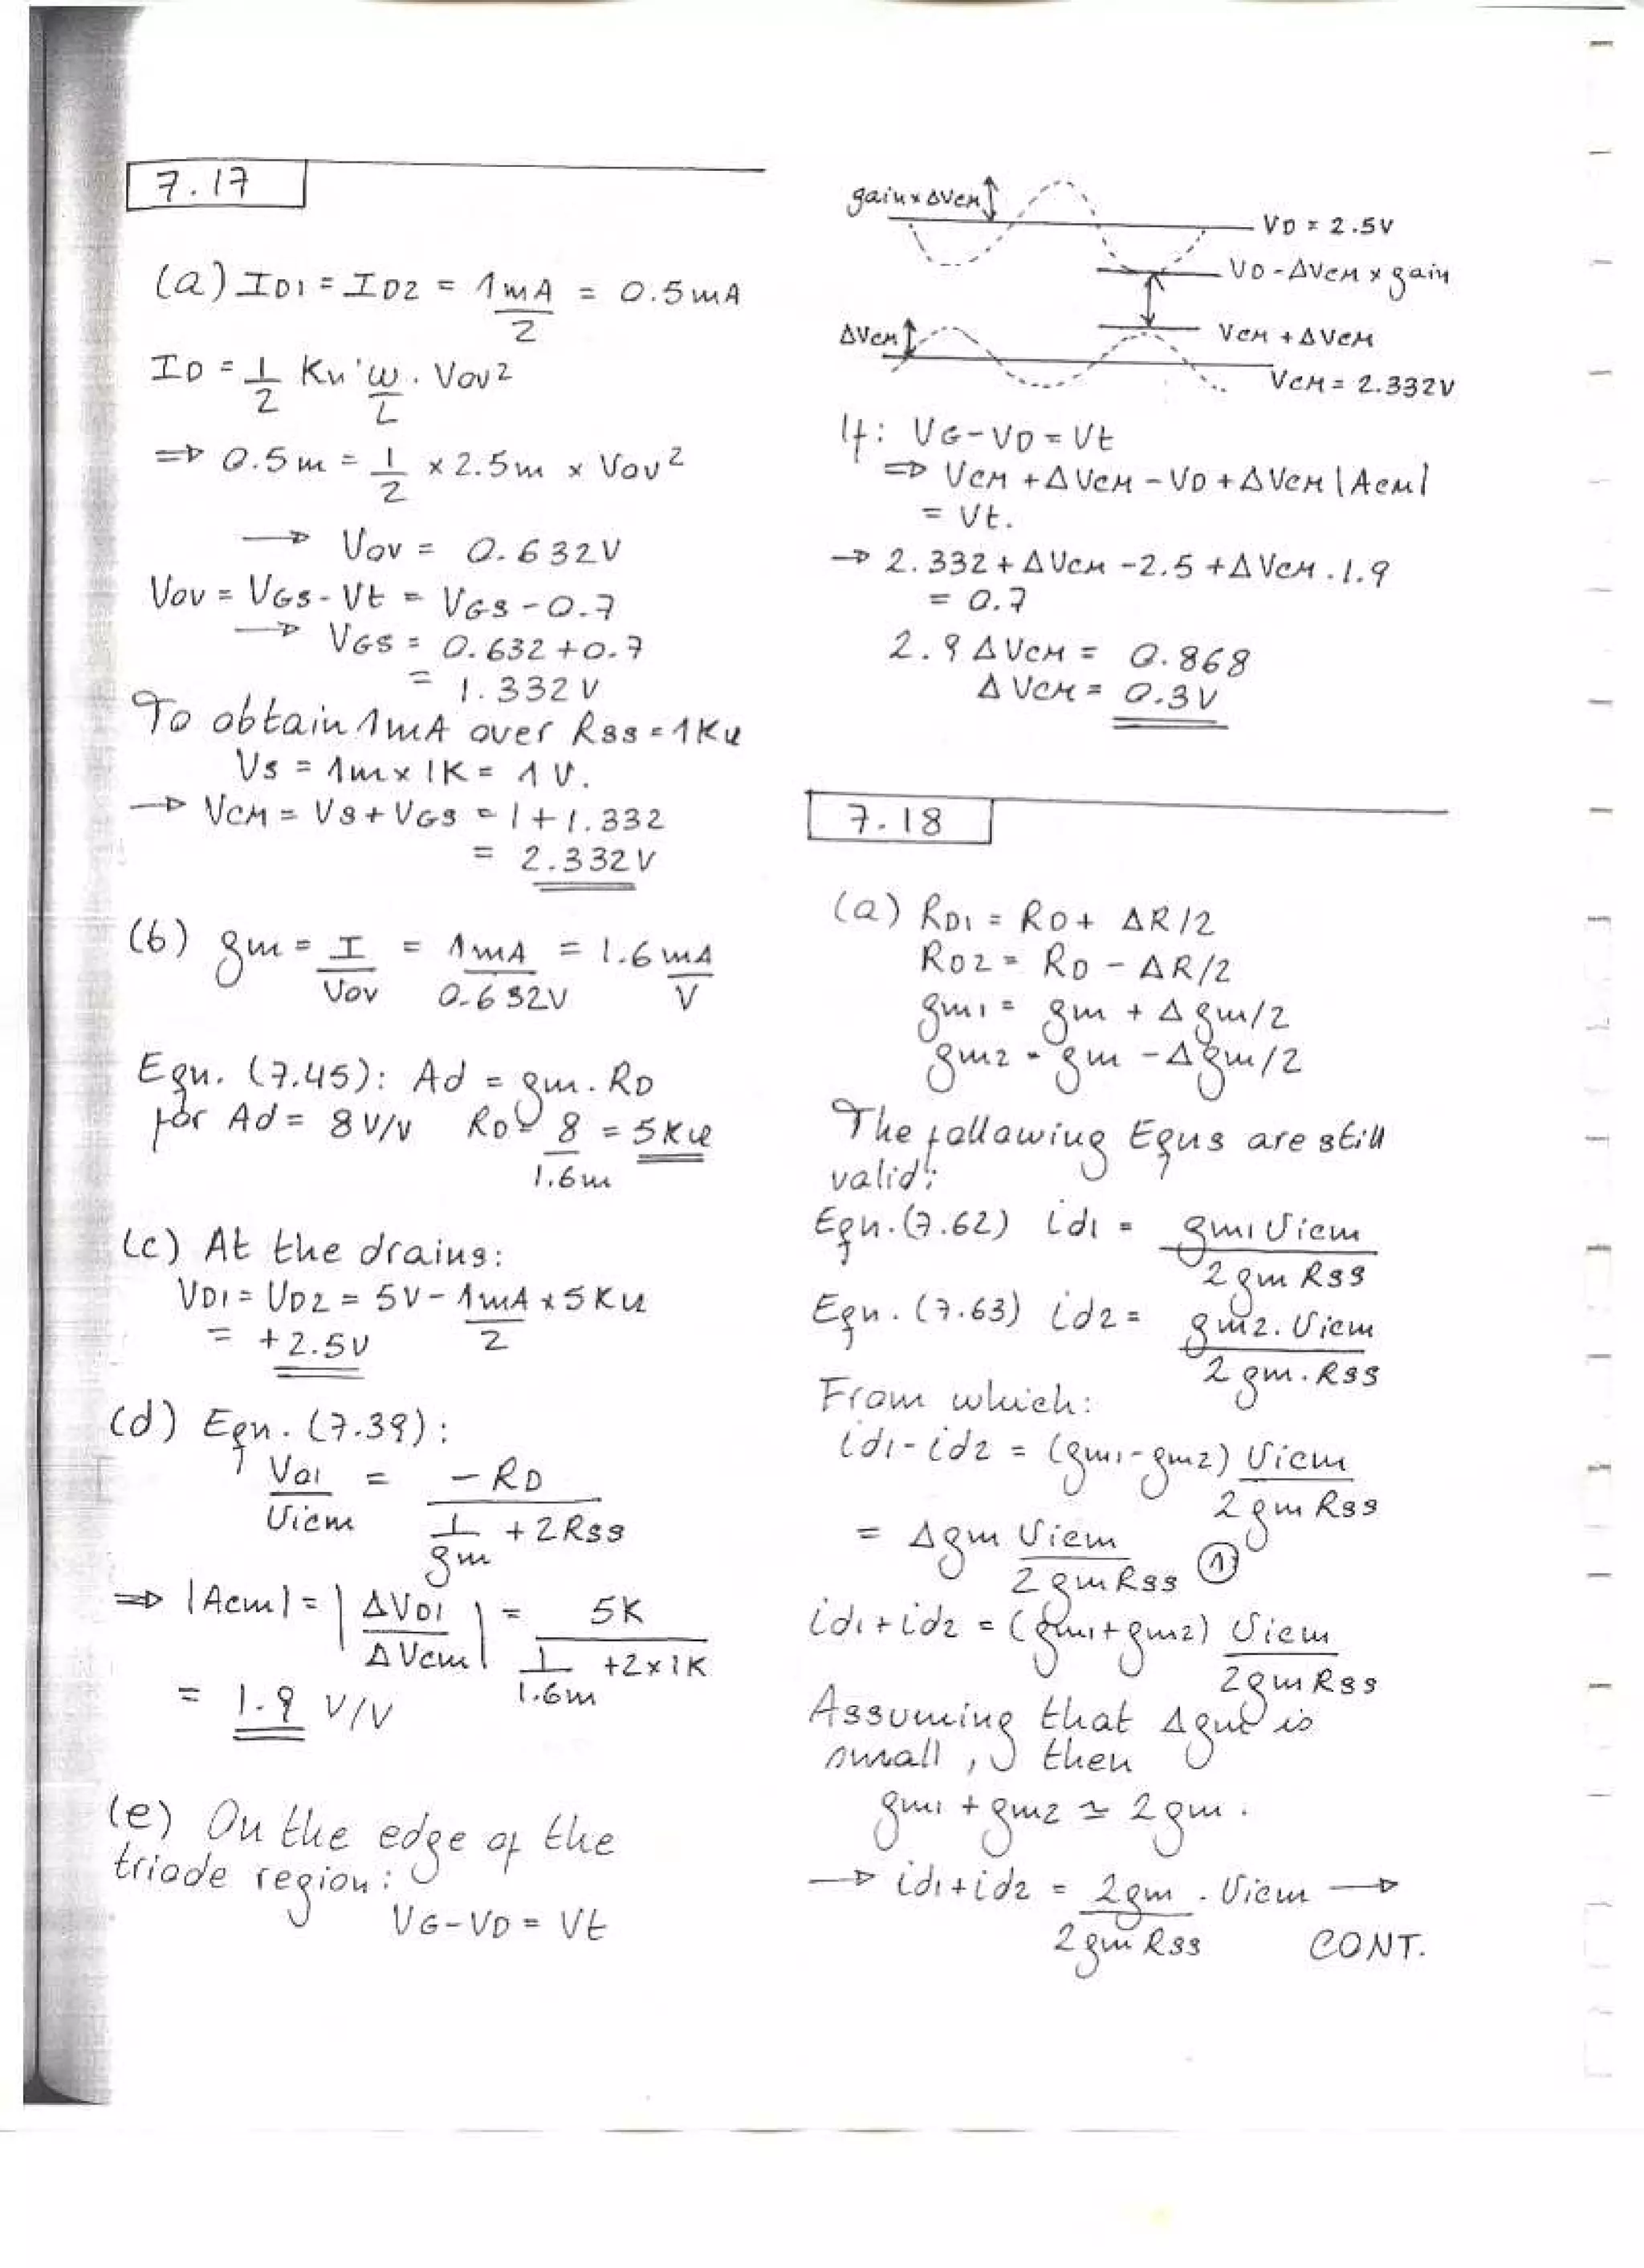 7.17
(a) ID1 = ID2 = 1mA/2 = 0.5mA
ID = 1/2 Kn' W/L . Vov²
⇒ 0.5m = 1/2 × 2.5m × Vov²
→ Vov = 0.632V
Vov = VGS - Vt = VGS - 0.7
→ VGS = 0.632 + 0.7
= 1.332V
To obtain 1mA over RSS = 1KΩ
VS = 1m × 1K = 1V.
→ VCM = VS + VGS = 1 + 1.332
= 2.332V
(b) gm = I/Vov = 1mA/0.632V = 1.6 mA/V
Eqn. (7.45): Ad = gm . RD
for Ad = 8V/V RD = 8/1.6m = 5KΩ
(c) At the drains:
VD1 = VD2 = 5V - 1mA/2 × 5KΩ
= +2.5V
(d) Eqn. (7.39):
Vo1/Vicm = -RD/(1/gm + 2RSS)
⇒ |Acm| = |ΔVD1/ΔVcm| = 5K/(1/1.6m + 2×1K)
= 1.9 V/V
(e) On the edge of the
triode region:
VG - VD = Vt
gain × ΔVCM
VD = 2.5V
VD - ΔVCM × gain
ΔVCM
VCM + ΔVCM
VCM = 2.332V
If: VG - VD = Vt
⇒ VCM + ΔVCM - VD + ΔVCM |Acm|
= Vt.
→ 2.332 + ΔVCM - 2.5 + ΔVCM . 1.9
= 0.7
2.9 ΔVCM = 0.868
ΔVCM = 0.3V
7.18
(a) RD1 = RD + ΔR/2
RD2 = RD - ΔR/2
gm1 = gm + Δgm/2
gm2 = gm - Δgm/2
The following Eqns are still
valid:
Eqn. (7.62) id1 = gm1 Vicm/2 gm RSS
Eqn. (7.63) id2 = gm2 . Vicm/2 gm . RSS
From which:
id1 - id2 = (gm1 - gm2) Vicm/2 gm RSS
= Δgm Vicm/2 gm RSS ①
id1 + id2 = (gm1 + gm2) Vicm/2gm RSS
Assuming that Δgm is
small, then
gm1 + gm2 ≃ 2gm.
→ id1 + id2 = 2gm/2gm RSS . Vicm →
CONT.